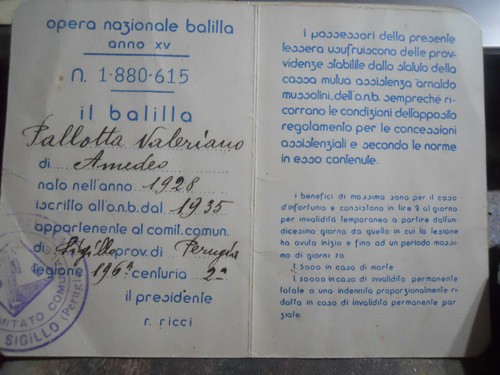 opera nazionale balilla
anno xv
n. 1·880·615
il balilla
Pallotta Valeriano
di Amedeo
nato nell'anno 1928
iscritto all'o.n.b. dal 1935
appartenente al comit. comun.
di Sigillo prov. di Perugia
legione 196ª centuria 2ª
il presidente
r. ricci
COMITATO COMU
SIGILLO (Perugia)
i possessori della presente
tessera usufruiscono delle prov-
videnze stabilite dallo statuto della
cassa mutua assistenza "arnaldo
mussolini" dell'o.n.b. sempreché ri-
corrano le condizioni dell'apposito
regolamento per le concessioni
assistenziali e secondo le norme
in esso contenute.
i benefici di massima sono per il caso
d'infortunio e consistono in lire 2 al giorno
per invalidità temporanea a partire dall'un-
dicesimo giorno da quello in cui la lesione
ha avuto inizio e fino ad un periodo massi-
mo di giorni 70
in caso di morte
in caso di invalidità permanente
totale o una indennità proporzionalmente ri-
dotta in caso di invalidità permanente par-
ziale.